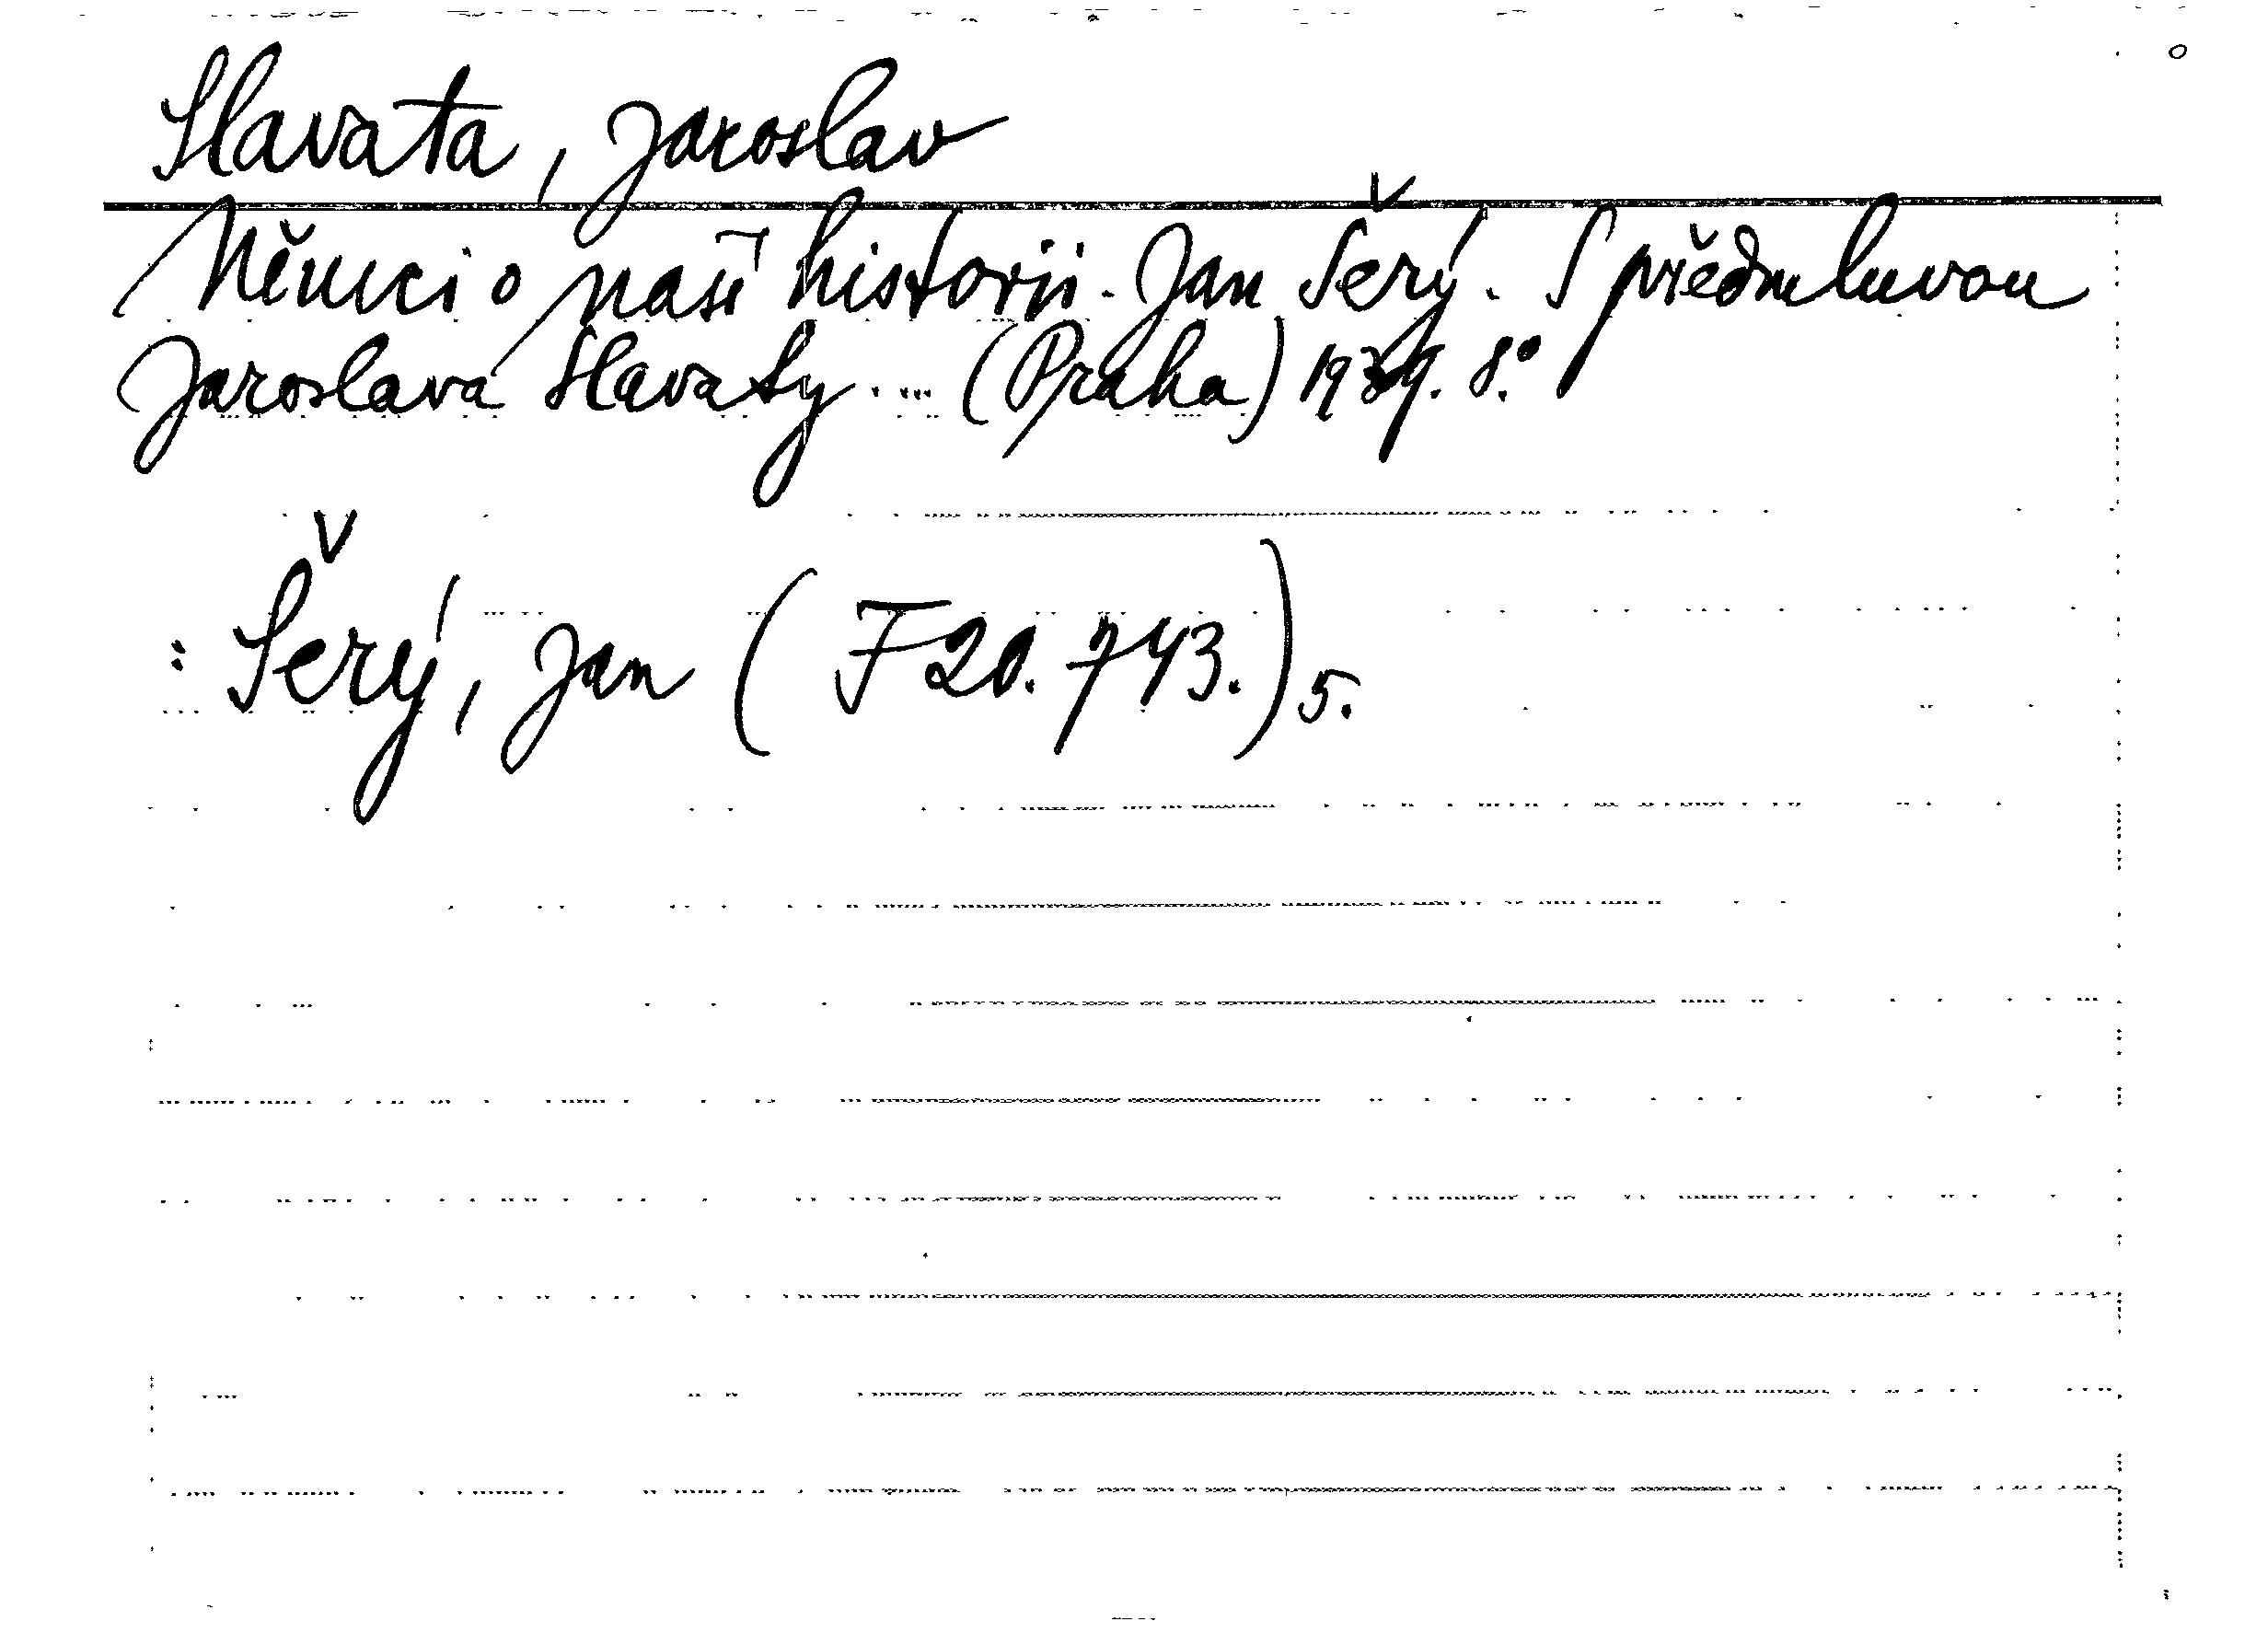 Slavata, Jaroslav
Němci o naší historii. Jan Šerý. S předmluvou
Jaroslava Slavaty. ... (Praha) 1939. 8.°
: Šerý, Jan (F 20.743.) 5.